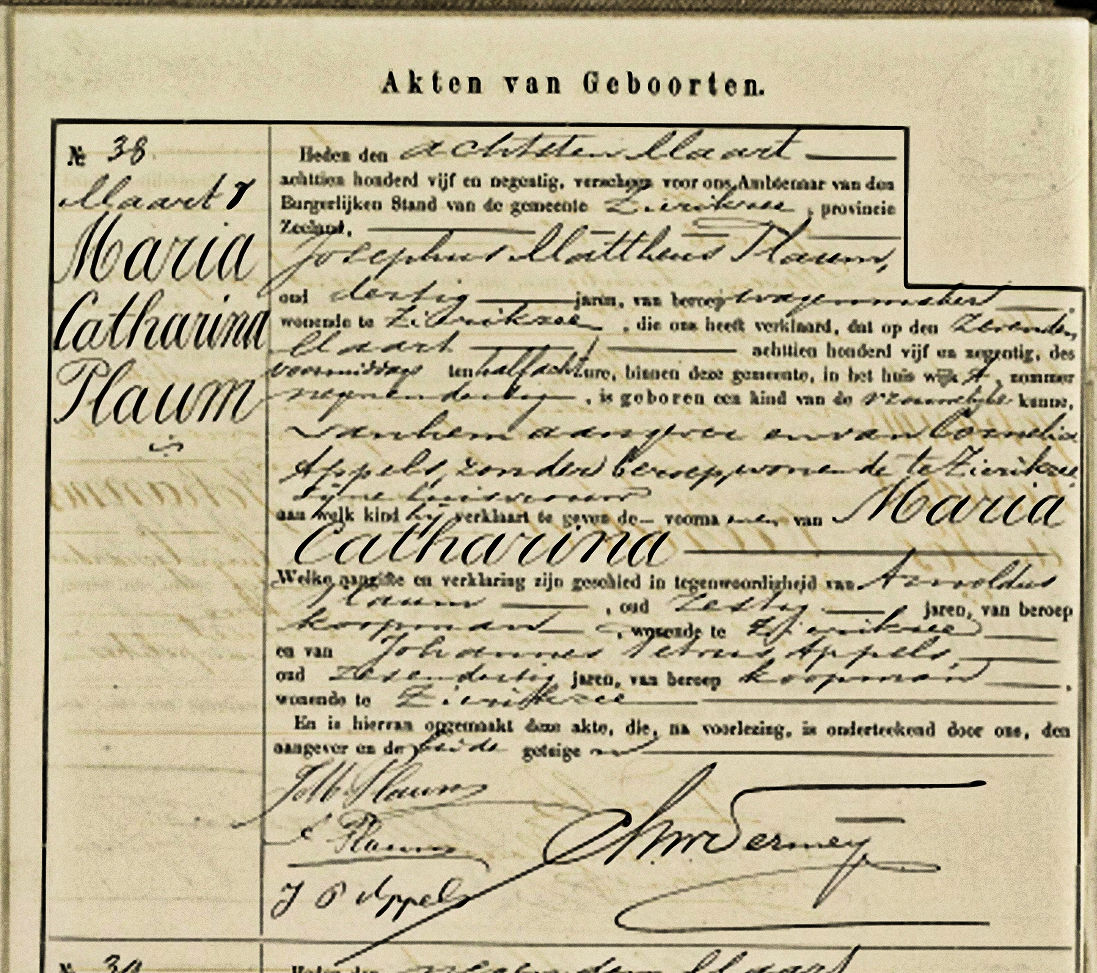 Akten van Geboorten.
№ 38.
Maart 7
Maria
Catharina
Plaum
Heden den achtsten Maart
achttien honderd vijf en negentig, verscheen voor ons Ambtenaar van den
Burgerlijken Stand van de gemeente Zierikzee, provincie
Zeeland,
Josephus Mattheus Plaum,
oud dertig jaren, van beroep wagenmaker
wonende te Zierikzee, die ons heeft verklaard, dat op den zevenden
Maart achttien honderd vijf en negentig, des
voormiddags ten half acht ure, binnen deze gemeente, in het huis wijk A, nommer
negenendertig, is geboren een kind van de vrouwelijke kunne,
van hem aangever en van Cornelia
Appels, zonder beroep, wonende te Zierikzee
zijne huisvrouw
aan welk kind hij verklaart te geven de voornamen van Maria
Catharina
Welke aangifte en verklaring zijn geschied in tegenwoordigheid van Arnoldus
Plaum, oud zestig jaren, van beroep
koopman, wonende te Zierikzee
en van Johannes Petrus Appels,
oud zesendertig jaren, van beroep koopman,
wonende te Zierikzee
En is hiervan opgemaakt deze akte, die, na voorlezing, is onderteekend door ons, den
aangever en de beide getuigen
J M. Plaum
Plaum
J P Appels
Vermeij
№ 39
Heden den negenden Maart